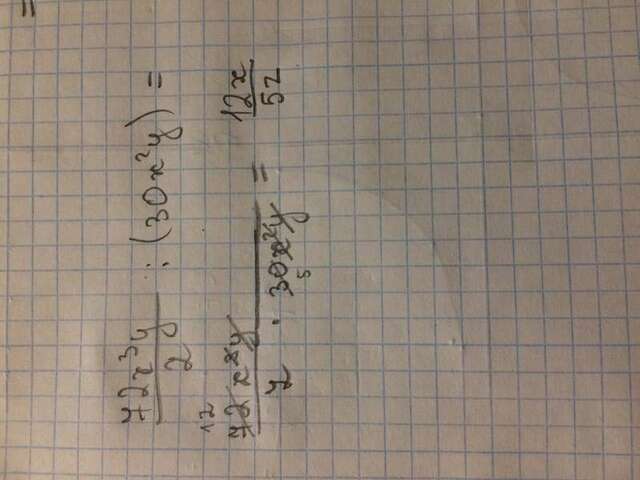 =
72x³y/2 : (30x²y) =
12
72x³y/z · 30x²y = 12x/5z
5